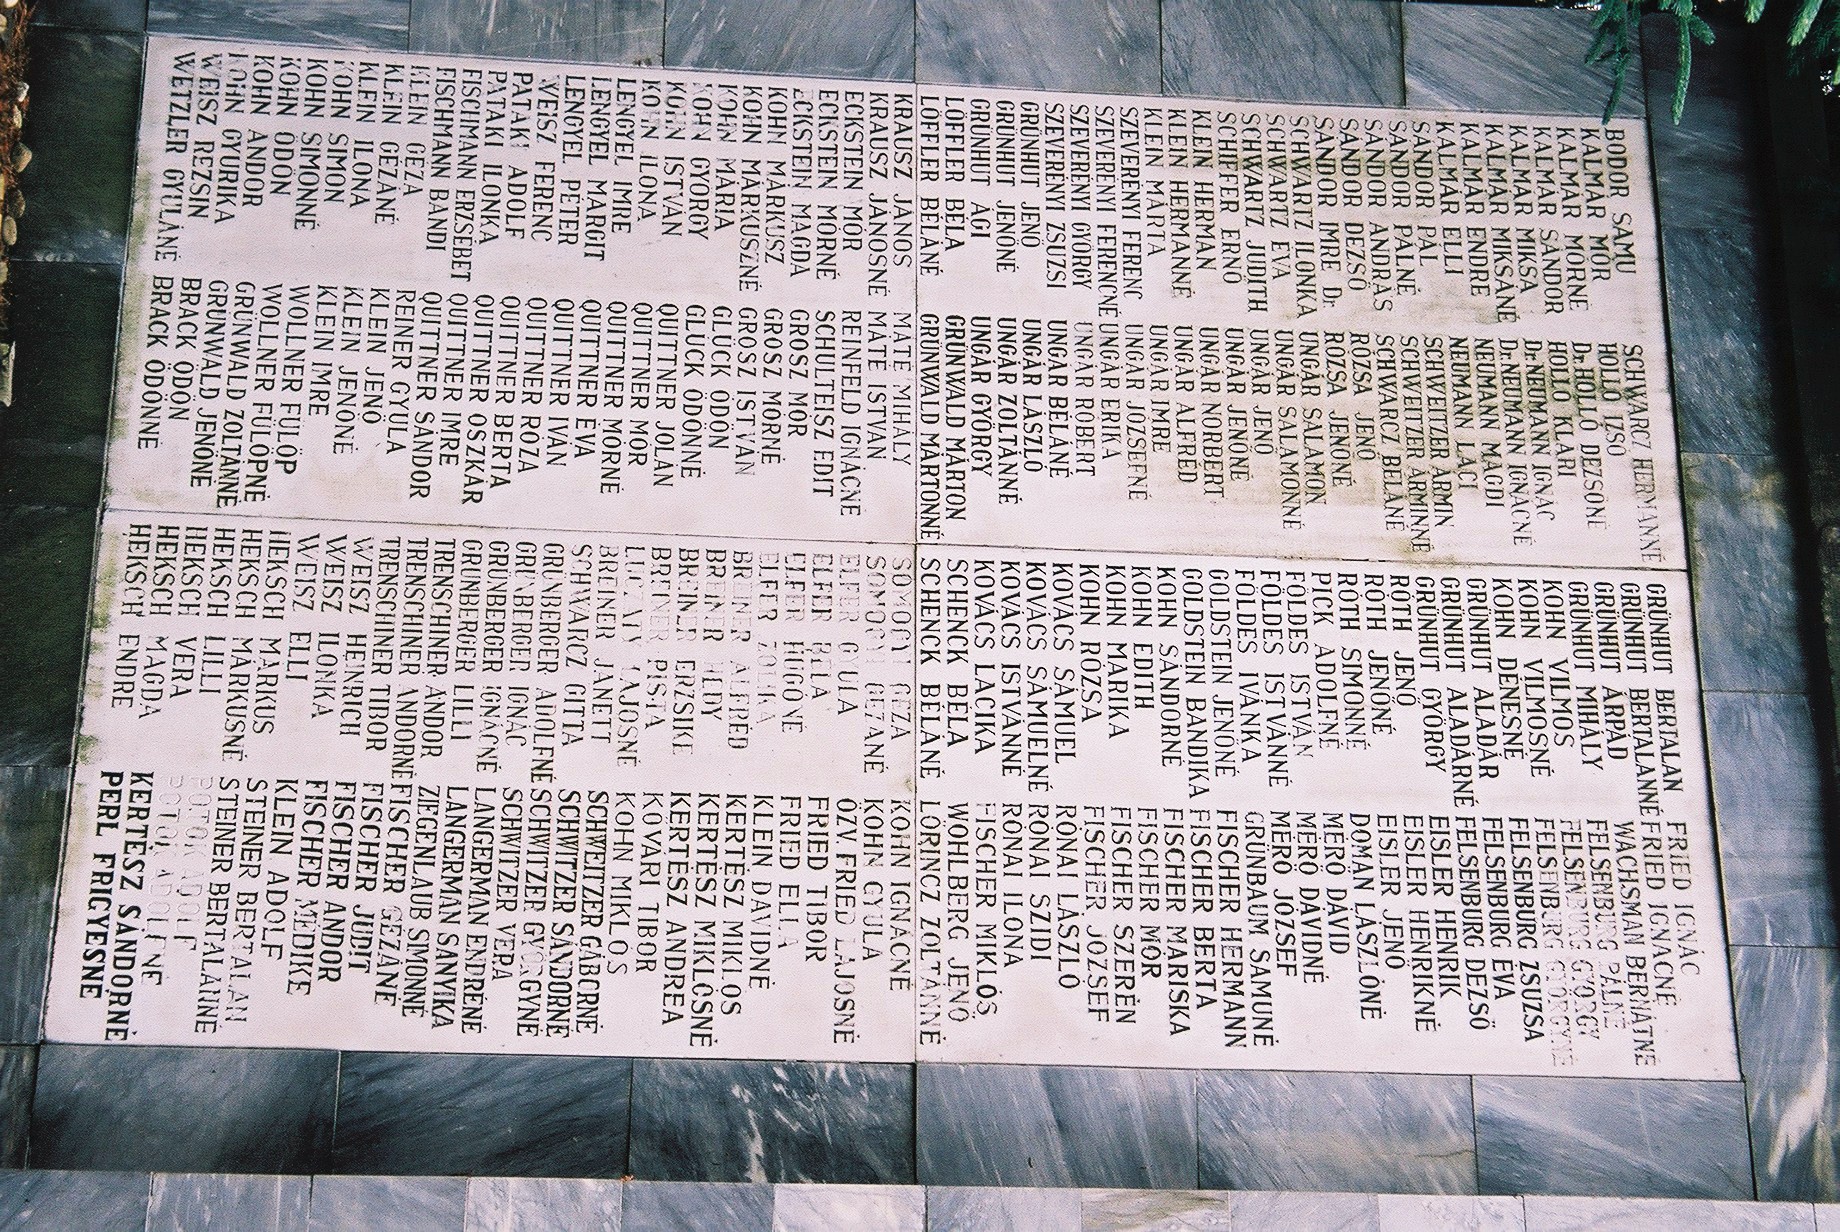 BODOR SAMU
KALMÁR MÓR
KALMÁR MÓRNÉ
KALMÁR SÁNDOR
KALMÁR MIKSA
KALMÁR MIKSÁNÉ
KALMÁR ENDRE
KALMÁR ELLI
SÁNDOR PÁL
SÁNDOR PÁLNÉ
SÁNDOR ANDRÁS
SÁNDOR DEZSÖ
SÁNDOR IMRE Dr.
SCHWARTZ ILONKA
SCHWARTZ ÉVA
SCHWARTZ JUDITH
SCHIFFER ERNÖ
KLEIN HERMAN
KLEIN HERMANNÉ
KLEIN MÁRTA
SZEVERÉNYI FERENC
SZEVERÉNYI FERENCNÉ
SZEVERÉNYI GYÖRGY
SZEVERÉNYI ZSUZSI
GRÜNHUT JENÖ
GRÜNHUT JENÖNÉ
GRÜNHUT ÁGI
LÖFFLER BÉLA
LÖFFLER BÉLÁNÉ
SCHWARCZ HERMANNÉ
HOLLÓ IZSÓ
Dr. HOLLÓ DEZSÖNÉ
HOLLÓ KLÁRI
Dr. NEUMANN IGNÁC
Dr. NEUMANN IGNÁCNÉ
NEUMANN MAGDI
NEUMANN LACI
SCHWEITZER ÁRMIN
SCHWEITZER ÁRMINNÉ
SCHWARCZ BÉLÁNÉ
RÓZSA JENÖ
RÓZSA JENÖNÉ
UNGÁR SALAMON
UNGÁR SALAMONNÉ
UNGÁR JENÖ
UNGÁR JENÖNÉ
UNGÁR NORBERT
UNGÁR ALFRÉD
UNGÁR IMRE
UNGÁR JÓZSEFNÉ
UNGÁR ERIKA
UNGÁR RÓBERT
UNGÁR BÉLÁNÉ
UNGÁR LÁSZLÓ
UNGÁR ZOLTÁNNÉ
UNGÁR GYÖRGY
GRÜNWALD MÁRTON
GRÜNWALD MÁRTONNÉ
GRÜNHUT BERTALAN
GRÜNHUT BERTALANNÉ
GRÜNHUT ÁRPÁD
GRÜNHUT MIHÁLY
KOHN VILMOS
KOHN VILMOSNÉ
KOHN DÉNESNÉ
GRÜNHUT ALADÁR
GRÜNHUT ALADÁRNÉ
GRÜNHUT GYÖRGY
RÓTH JENÖ
RÓTH JENÖNÉ
ROTH SIMONNÉ
PICK ADOLFNÉ
FÖLDES ISTVÁN
FÖLDES ISTVÁNNÉ
FÖLDES IVÁNKA
GOLDSTEIN JENÖNÉ
GOLDSTEIN BANDIKA
KOHN SÁNDORNÉ
KOHN EDITH
KOHN MARIKA
KOHN RÓZSA
KOVÁCS SÁMUEL
KOVÁCS SÁMUELNÉ
KOVÁCS ISTVÁNNÉ
KOVÁCS LACIKA
SCHENCK BÉLA
SCHENCK BÉLÁNÉ
FRIED IGNÁC
FRIED IGNÁCNÉ
WACHSMAN BERNÁTNÉ
FELSENBURG PÁLNÉ
FELSENBURG GYÖRGY
FELSENBURG GYÖRGYNÉ
FELSENBURG ZSUZSA
FELSENBURG ÉVA
FELSENBURG DEZSÖ
EISLER HENRIK
EISLER HENRIKNÉ
EISLER JENÖ
DOMÁN LÁSZLÓNÉ
MÉRÖ DÁVID
MÉRÖ DÁVIDNÉ
MÉRÖ JÓZSEF
GRÜNBAUM SAMUNÉ
FISCHER HERMANN
FISCHER BERTA
FISCHER MARISKA
FISCHER MÓR
FISCHER SZERÉN
FISCHER JÓZSEF
RÓNAI LÁSZLÓ
RÓNAI SZIDI
RÓNAI ILONA
FISCHER MIKLÓS
WOHLBERG JENÖ
LÖRINCZ ZOLTÁNNÉ
KRAUSZ JÁNOS
KRAUSZ JÁNOSNÉ
ECKSTEIN MÓR
ECKSTEIN MÓRNÉ
ECKSTEIN MAGDA
KOHN MÁRKUSZ
KOHN MÁRKUSZNÉ
KOHN MÁRIA
KOHN GYÖRGY
KOHN ISTVÁN
KOHN ILONA
LENGYEL IMRE
LENGYEL MARGIT
LENGYEL PÉTER
WEISZ FERENC
PATAKI ADOLF
PATAKI ILONKA
FISCHMANN ERZSÉBET
FISCHMANN BANDI
KLEIN GÉZA
KLEIN GÉZÁNÉ
KLEIN ILONA
KOHN SIMON
KOHN SIMONNÉ
KOHN ÖDÖN
KOHN ANDOR
KOHN GYURIKA
WEISZ REZSIN
WETZLER GYULÁNÉ
MÁTÉ MIHÁLY
MÁTÉ ISTVÁN
REINFELD IGNÁCNÉ
SCHULTEISZ EDIT
GROSZ MÓR
GROSZ MÓRNÉ
GROSZ ISTVÁN
GLÜCK ÖDÖN
GLÜCK ÖDÖNNÉ
QUITTNER JOLÁN
QUITTNER MÓR
QUITTNER MÓRNÉ
QUITTNER ÉVA
QUITTNER IVÁN
QUITTNER RÓZA
QUITTNER BERTA
QUITTNER OSZKÁR
QUITTNER IMRE
QUITTNER SÁNDOR
REINER GYULA
KLEIN JENÖ
KLEIN JENÖNÉ
KLEIN IMRE
WOLLNER FÜLÖP
WOLLNER FÜLÖPNÉ
GRÜNWALD ZOLTÁNNÉ
GRÜNWALD JENÖNÉ
BRACK ÖDÖN
BRACK ÖDÖNNÉ
SOMOGYI GÉZA
SOMOGYI GÉZÁNÉ
ELFER GYULA
ELFER BÉLA
ELFER HUGÓNÉ
ELFER ZOLIKA
BREINER ALFRÉD
BREINER HÉDY
BREINER ERZSIKE
BREINER PISTA
LUCZATY LAJOSNÉ
BREINER JANETT
SCHWARCZ GITTA
GRÜNBERGER ADOLFNÉ
GRÜNBERGER IGNÁC
GRÜNBERGER IGNÁCNÉ
GRÜNBERGER LILLI
TRENSCHINER ANDOR
TRENSCHINER ANDORNÉ
TRENSCHINER TIBOR
WEISZ HEINRICH
WEISZ ILONKA
WEISZ ELLI
HEKSCH MÁRKUS
HEKSCH MÁRKUSNÉ
HEKSCH LILLI
HEKSCH VERA
HEKSCH MAGDA
HEKSCH ENDRE
KOHN IGNÁCNÉ
KOHN GYULA
ÖZV. FRIED LAJOSNÉ
FRIED TIBOR
FRIED ELLA
KLEIN DÁVIDNÉ
KERTÉSZ MIKLÓS
KERTÉSZ MIKLÓSNÉ
KERTÉSZ ANDREA
KÖVÁRI TIBOR
KOHN MIKLÓS
SCHWEITZER GÁBORNÉ
SCHWITZER SÁNDORNÉ
SCHWITZER GYÖRGYNÉ
SCHWITZER VERA
LANGERMAN ENDRÉNÉ
LANGERMAN SANYIKA
ZIEGENLAUB SIMONNÉ
FISCHER GÉZÁNÉ
FISCHER JUDIT
FISCHER ANDOR
FISCHER MÉDIKE
KLEIN ADOLF
STEINER BERTALAN
STEINER BERTALANNÉ
POTOK ADOLF
POTOK ADOLFNÉ
KERTÉSZ SÁNDORNÉ
PERL FRIGYESNÉ